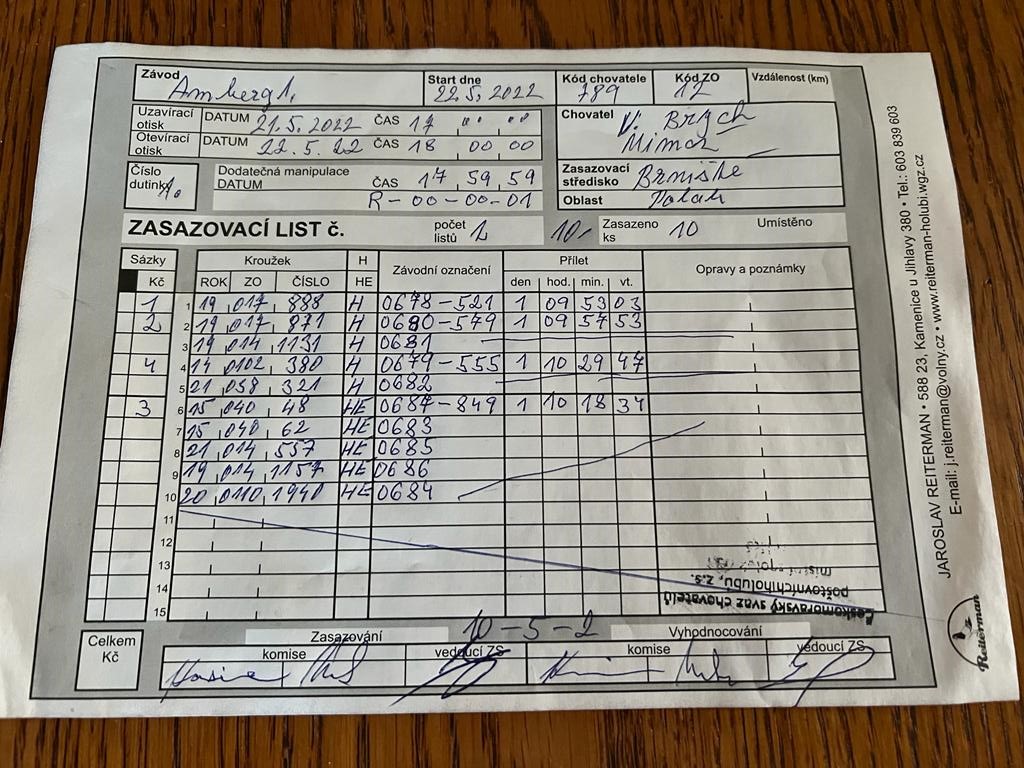 Závod Start dne Kód chovatele Kód ZO Vzdálenost (km)
Amberg 1. 22.5.2022 789 12
Uzavírací otisk DATUM 21.5.2022 ČAS 17 00 00
Otevírací otisk DATUM 22.5.22 ČAS 18 00 00
Chovatel V. Brych
Číslo dutinky 1.
Dodatečná manipulace
DATUM ČAS 17 59 59
R-00-00-01
Zasazovací středisko
Oblast
ZASAZOVACÍ LIST č. počet listů 1 10,- Zasazeno ks 10 Umístěno
Sázky Kroužek H Závodní označení Přílet Opravy a poznámky
Kč ROK ZO ČÍSLO HE den hod. min. vt.
1 1 19 017 888 H 0678-521 1 09 53 03
2 2 19 017 871 H 0680-579 1 09 57 53
3 19 014 1131 H 0681
4 4 14 0102 380 H 0679-555 1 10 29 47
5 21 038 321 H 0682
3 6 15 040 48 HE 0687-849 1 10 18 34
7 15 040 62 HE 0683
8 21 014 557 HE 0685
9 19 014 1157 HE 0686
10 20 0110 1940 HE 0684
11
12
13
14
15
Českomoravský svaz chovatelů
poštovních holubů, z.s.
Celkem Kč
10-5-2
Zasazování Vyhodnocování
komise vedoucí ZS komise vedoucí ZS
JAROSLAV REITERMAN • 588 23, Kamenice u Jihlavy 380 • Tel.: 603 839 603
E-mail: j.reiterman@volny.cz • www.reiterman-holubi.wgz.cz
Reiterman